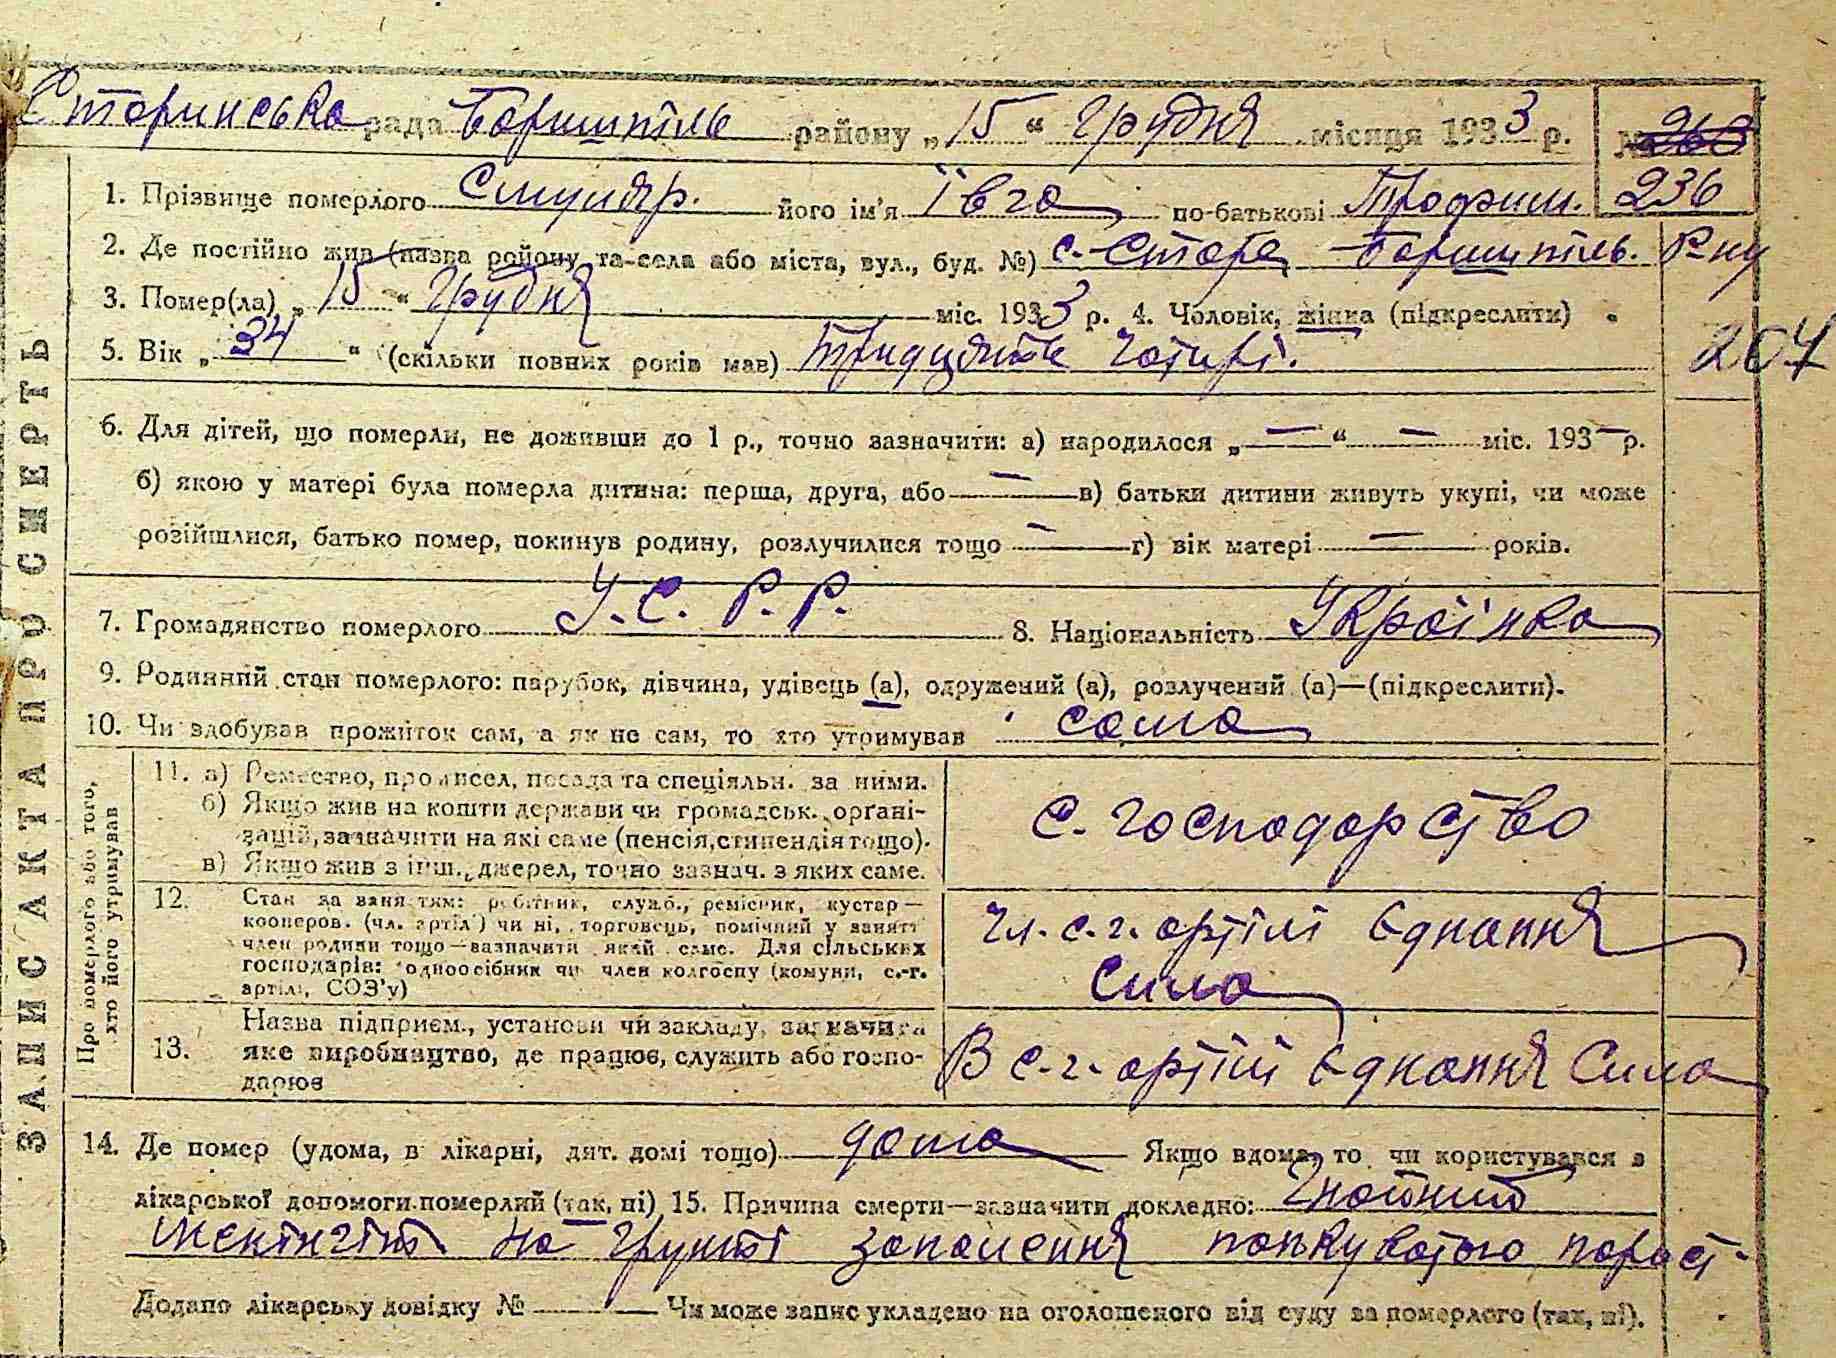 Старинська рада Боришпіль району „15“ Грудня місяця 1933 р. № 260
1. Прізвище померлого Смуляр. його ім'я Ївга по-батькові Трофим. 236
2. Де постійно жив (назва району та села або міста, вул., буд. №) с. Старе Боришпіль. Р-ну
3. Помер(ла) „15“ Грудня міс. 1933 р. 4. Чоловік, жінка (підкреслити)
5. Вік „34“ (скільки повних років мав) Тридцять Чотирі. 207
6. Для дітей, що померли, не доживши до 1 р., точно зазначити: а) народилося „—“ — міс. 193— р.
б) якою у матері була померла дитина: перша, друга, або — в) батьки дитини живуть укупі, чи може
розійшлися, батько помер, покинув родину, розлучилися тощо — г) вік матері — років.
7. Громадянство померлого У.С.Р.Р. 8. Національність Українка
9. Родинний стан померлого: парубок, дівчина, удівець (а), одружений (а), розлучений (а)—(підкреслити).
10. Чи здобував прожиток сам, а як не сам, то хто утримував сама
ЗАПИС АКТА ПРО СМЕРТЬ
Про померлого або того, хто його утримував
11. а) Ремество, промисел, посада та спеціяльн. за ними.
б) Якщо жив на кошти держави чи громадськ. орґані-
зацій, зазначити на які саме (пенсія, стипендія тощо).
в) Якщо жив з інш. джерел, точно зазнач. з яких саме.
с. господарство
12. Стан за заняттям: робітник, служб., ремісник, кустар—
кооперов. (чл. артілі) чи ні, торговець, помічний у занятті
член родини тощо—зазначити який саме. Для сільських
господарів: одноосібник чи член колгоспу (комуни, с.-г.
артілі, СОЗ'у)
Чл. с.-г. артілі Єднання
Сила
13. Назва підприєм., установи чи закладу, зазначити
яке виробництво, де працює, служить або госпо-
дарює
В с.-г. артілі Єднання Сила
14. Де помер (удома, в лікарні, дит. домі тощо) дома Якщо вдома, то чи користувався з
лікарської допомоги померлий (так, ні) 15. Причина смерти—зазначити докладно: Гнойний
менінгіт на ґрунті запалення
Додано лікарську довідку № — Чи може запис укладено на оголошеного від суду за померлого (так, ні).